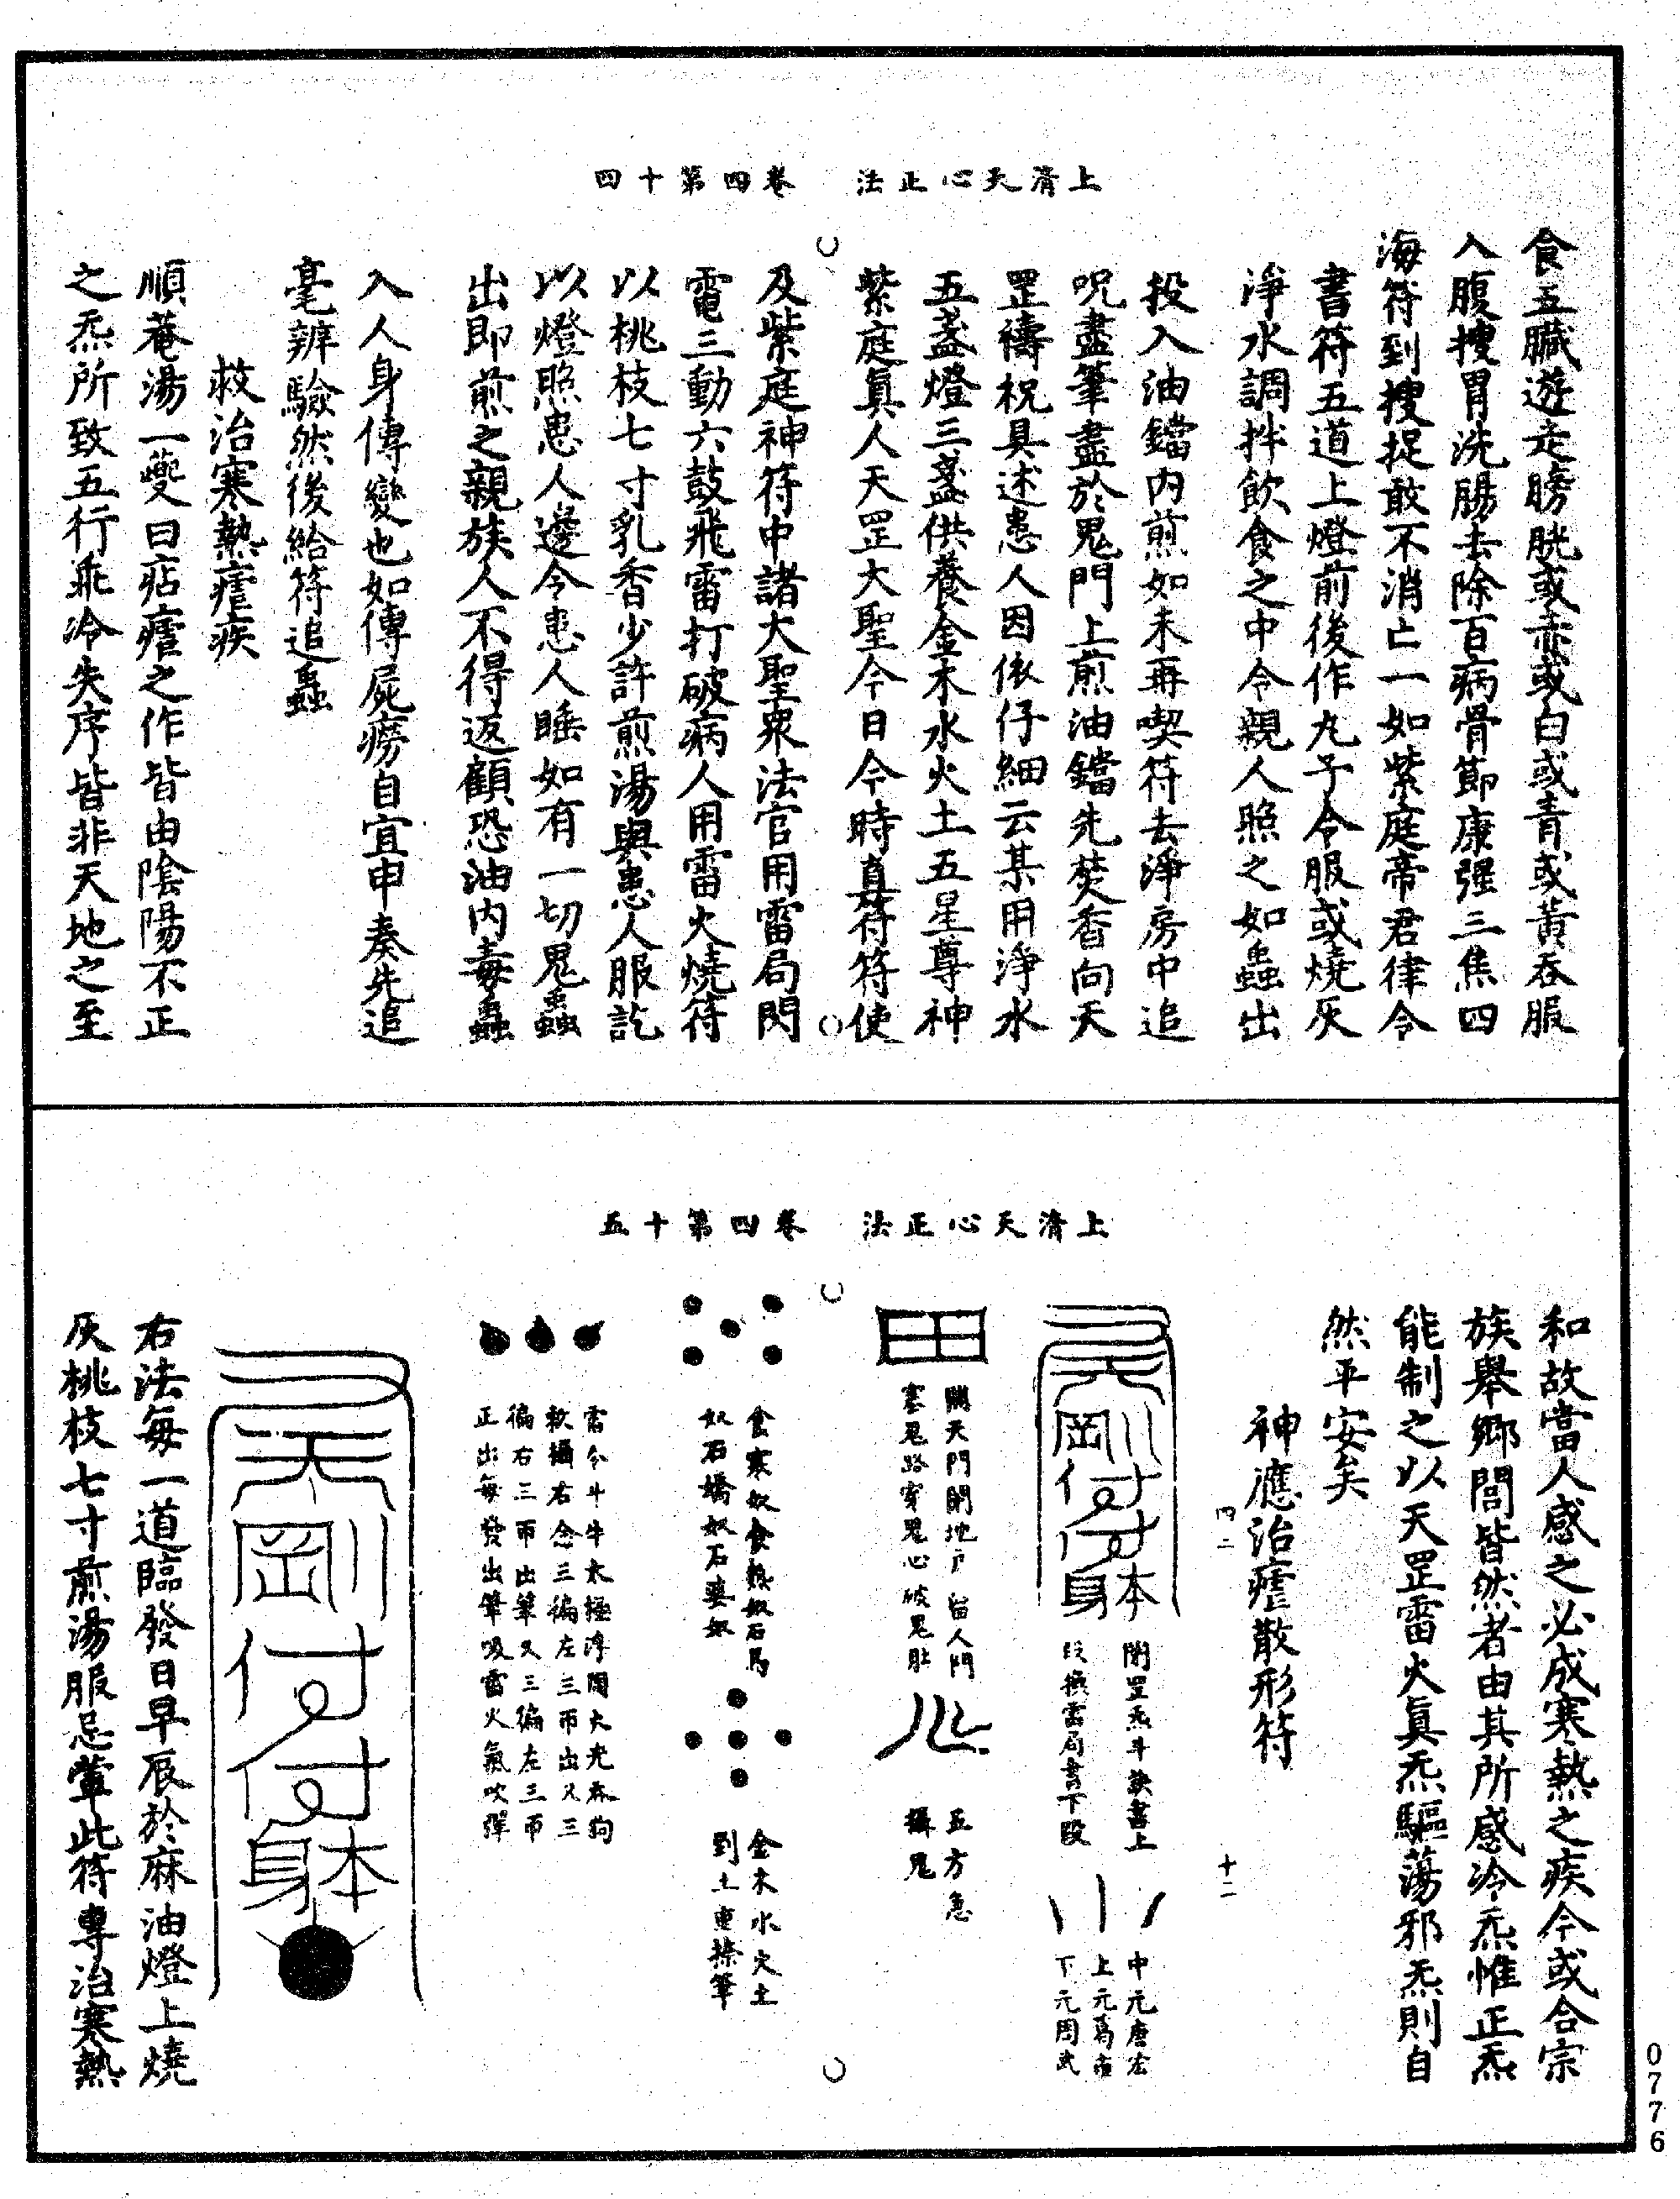 上清天心正法　卷四第十四
食五臟遊走膀胱或赤或白或青或黃吞服
入腹搜胃洗腸去除百病骨節康强三焦四
海符到搜捉敢不消亡一如紫庭帝君律令
書符五道上燈前後作丸子令服或燒灰
淨水調拌飲食之中令親人照之如蟲出
投入油鐺內煎如未再喫符去淨房中追
呪盡筆盡於鬼門上煎油鐺先焚香向天
罡禱祝具述患人因依仔細云某用淨水
五盞燈三盞供養金木水火土五星尊神
紫庭眞人天罡大聖今日今時真符符使
及紫庭神符中諸大聖衆法官用雷局閃
電三動六鼓飛雷打破病人用雷火燒符
以桃枝七寸乳香少許煎湯與患人服訖
以燈照患人邊令患人睡如有一切鬼蟲
出即煎之親族人不得返顧恐油內毒蟲
入人身傳變也如傳屍癆自宜申奏先追
毫辨驗然後給符追蟲
救治寒熱瘧疾
順菴湯一夔曰痁瘧之作皆由陰陽不正
之炁所致五行乖冷失序皆非天地之至
上清天心正法　卷四第十五
和故當人感之必成寒熱之疾今或合宗
族舉鄉閭皆然者由其所感冷炁惟正炁
能制之以天罡雷火眞炁驅蕩邪炁則自
然平安矣
神應治瘧散形符
四二　十二
閉罡炁斗訣書上
段換雷局書下段
中元唐宏
上元葛雍
下元周武
開天門閉地户留人門
塞鬼路穿鬼心破鬼肚
五方急
攝鬼
食寒奴食熱奴石馬
奴石嬌奴石婆奴
金木水火土
劉土東操筆
右三帀出筆又三徧左三帀
正出每發出筆吸雷火氣吹彈
右法每一道臨發日早辰於麻油燈上燒
灰桃枝七寸煎湯服忌葷此符專治寒熱
0776